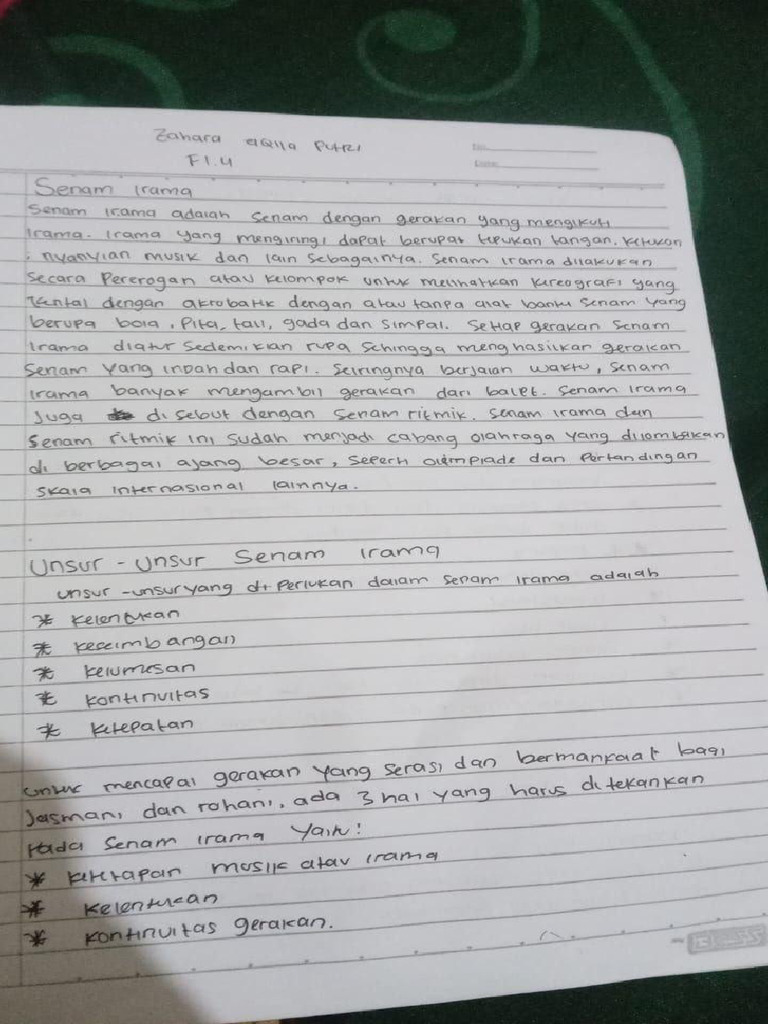 Zahara aQila Putri
F1.4
No
Date
Senam irama
Senam irama adalah senam dengan gerakan yang mengikuti
irama. irama yang mengiringi dapat berupa tepukan tangan, ketukan
nyanyian musik dan lain sebagainya. Senam irama dilakukan
secara Pererogan atau kelompok untuk melihatkan kureografi yang
kental dengan akrobatik dengan atau tanpa alat bantu senam yang
berupa bola, Pita, tali, gada dan simpai. Setiap gerakan senam
irama diatur sedemikian rupa sehingga menghasilkan gerakan
senam yang indah dan rapi. Seiringnya berjalan waktu, senam
irama banyak mengambil gerakan dari balet. Senam irama
juga di sebut dengan senam ritmik. Senam irama dan
senam ritmik ini sudah menjadi cabang olahraga yang dilombakan
di berbagai ajang besar, seperti olimpiade dan Pertandingan
skala internasional lainnya.
Unsur - Unsur Senam irama
unsur - unsur yang di Perlukan dalam senam irama adalah
* kelentukan
* keseimbangan
* keluwesan
* kontinuitas
* ketepatan
untuk mencapai gerakan yang serasi dan bermanfaat bagi
Jasmani dan rohani, ada 3 hal yang harus di tekankan
Pada Senam irama yaitu:
* musik atau irama
* kelentukan
* kontinuitas gerakan.